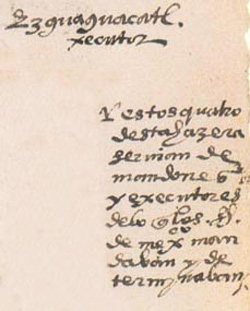 ezguaguacatl.
xecutor
Y estos quatro
desta hazera
servian de
mandones
y executores
de lo q̃ los
de mexco man
davan y de
terminavan